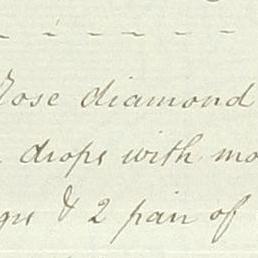 Rose diamond
drops with
& 2 pair of